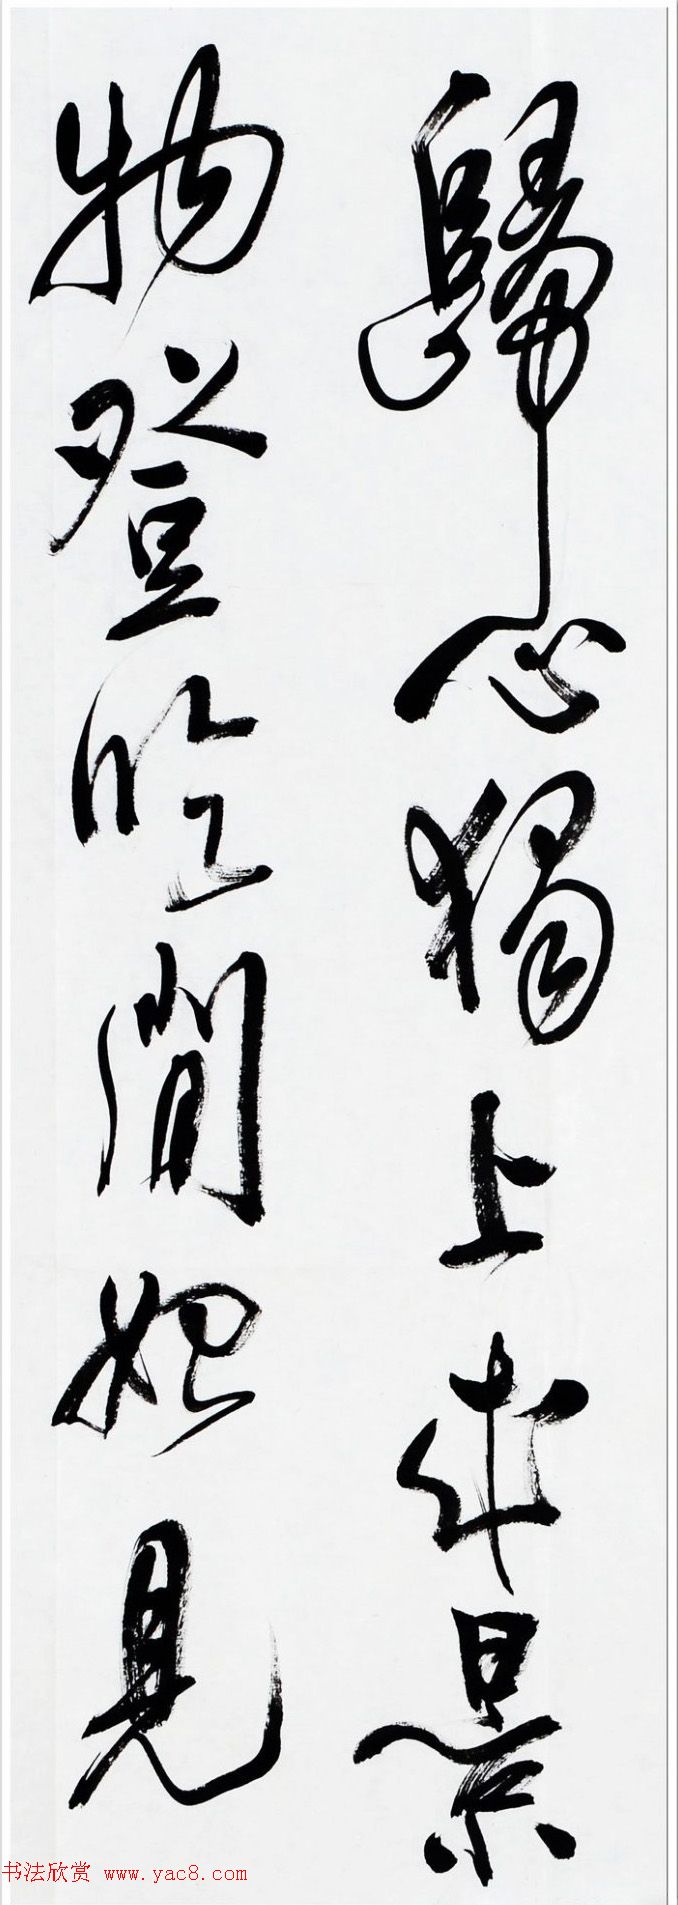 歸心獨上求景
物登臨閒始見
书法欣赏 www.yac8.com